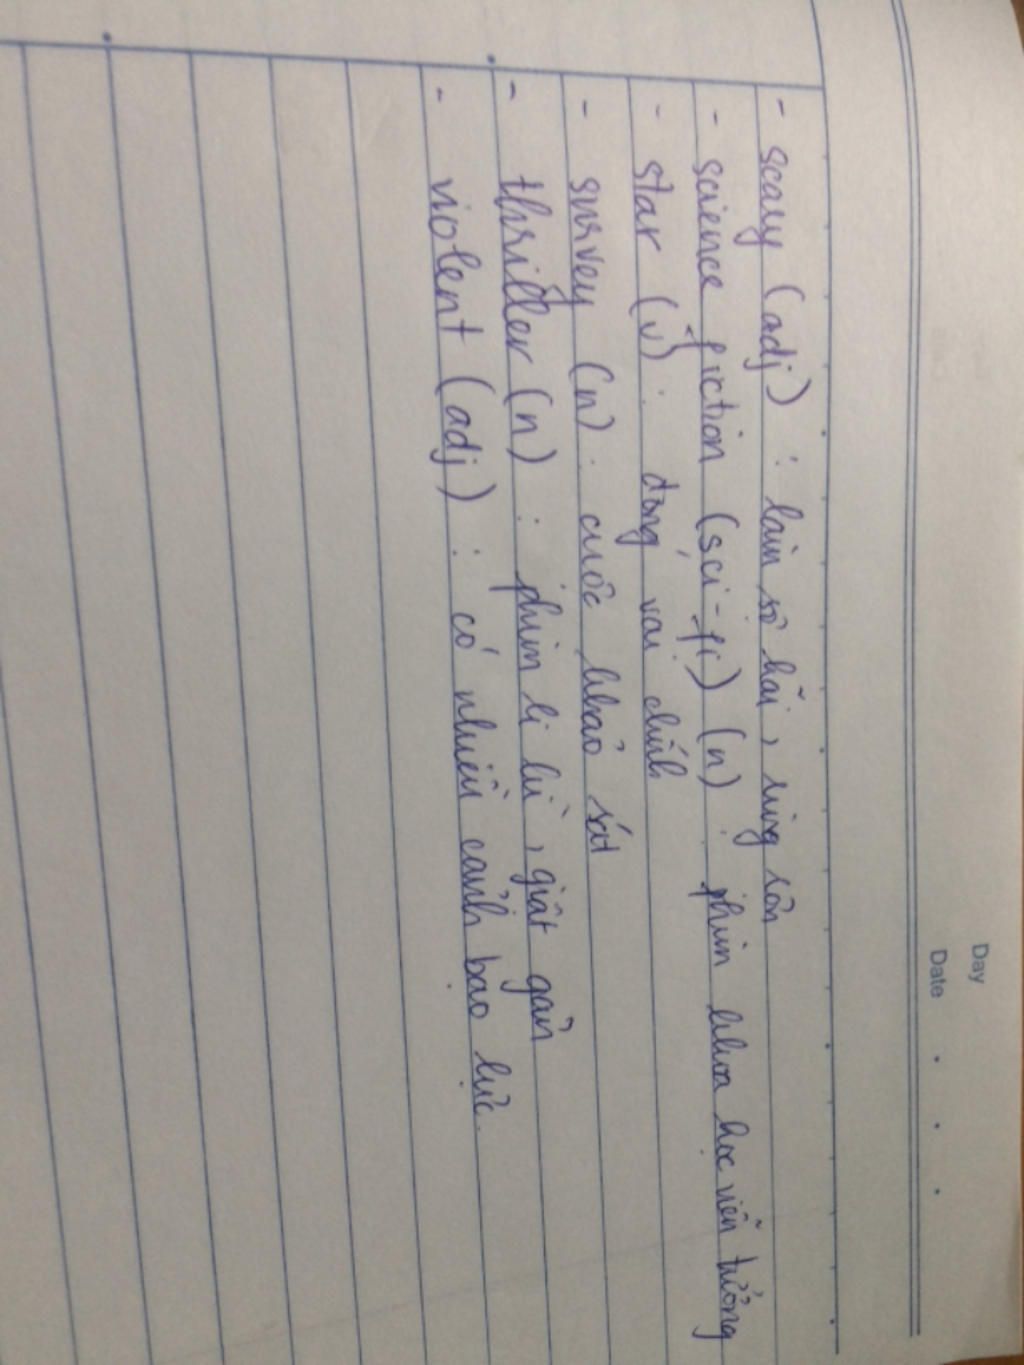 Day
Date
- scary (adj) : làm sợ hãi, rùng rợn
- science fiction (sci-fi) (n) : phim khoa học viễn tưởng
- star (v) : đóng vai chính
- survey (n) : cuộc khảo sát
- thriller (n) : phim li kì, giật gân
- violent (adj) : có nhiều cảnh bạo lực.